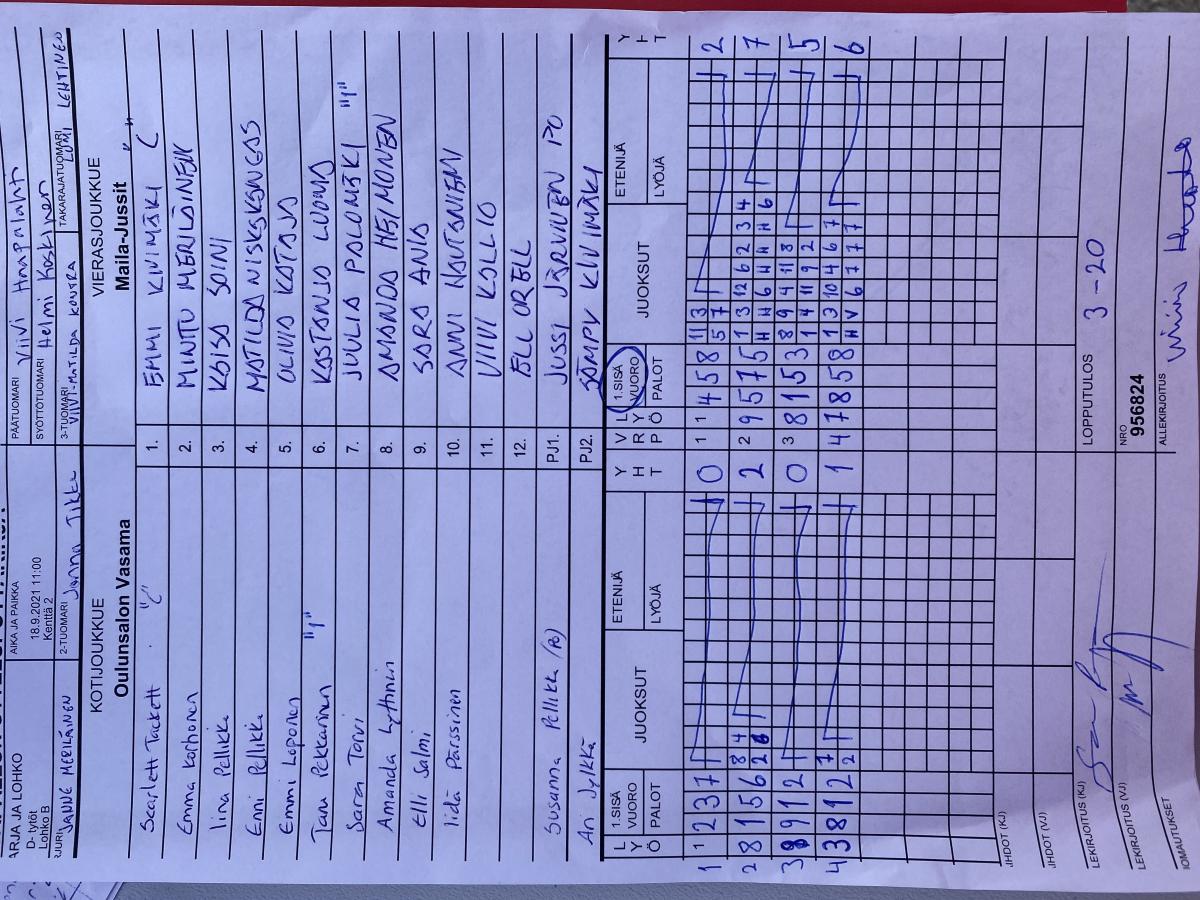 ARJA JA LOHKO
D- tytöt
Lohko B
AIKA JA PAIKKA
18.9.2021 11:00
Kenttä 2
PÄÄTUOMARI
Viivi Haapalahti
SYÖTTÖTUOMARI Helmi Koskinen
JANNE MERILÄINEN
2-TUOMARI Janna Tikka
3-TUOMARI
VIIVI-MATILDA KONTRA
TAKARAJATUOMARI
LUMI LEHTINEN
KOTIJOUKKUE
Oulunsalon Vasama
VIERASJOUKKUE
Maila-Jussit
Scarlett Tackett "C" 1. EMMI KIVIMÄKI C
Emma Korhonen 2. MINTTU MERILÄINEN
Iina Pellikka 3. KAISA SOINI
Enni Pellikka 4. MATILDA NISKAKANGAS
Emmi Leponen 5. OLIVIA KATAJA
Taru Pekkarinen "1" 6. KASTANJA LUOMA
Sara Torvi 7. JUULIA PALOMÄKI "1"
Amanda Lyttinen 8. AMANDA HEIMONEN
Elli Salmi 9. SARA ANIA
Iida Pärssinen 10. ANNI HAUTANIEMI
11. VIIVI KALLIO
12. ELL ORELL
Susanna Pellikka PJ1. JUSSI JÄRVINEN
Ari Jylkkä PJ2. SAMPV KIVIMÄKI
L Y Ö
1.SISÄ VUORO
PALOT
JUOKSUT
ETENIJÄ
LYÖJÄ
Y H T
V R P
L Y Ö
1.SISÄ VUORO
PALOT
JUOKSUT
ETENIJÄ
LYÖJÄ
Y H T
1 1 2 3 7 0 1 1 4 5 8 11 3 2
5 7
2 8 1 5 6 8 4 2 2 9 5 7 5 1 3 12 6 2 3 4 7
H H 6 H H H 6
3 9 1 2 0 3 8 1 5 3 8 9 4 11 8 5
1 4 11 9 2
4 3 8 1 2 7 1 4 7 8 5 8 1 3 10 4 6 7 6
2 H V 6 7 7 7
JHDOT (KJ)
JHDOT (VJ)
LEKIRJOITUS (KJ)
LOPPUTULOS 3 - 20
LEKIRJOITUS (VJ)
NRO
956824
IOMAUTUKSET
ALLEKIRJOITUS